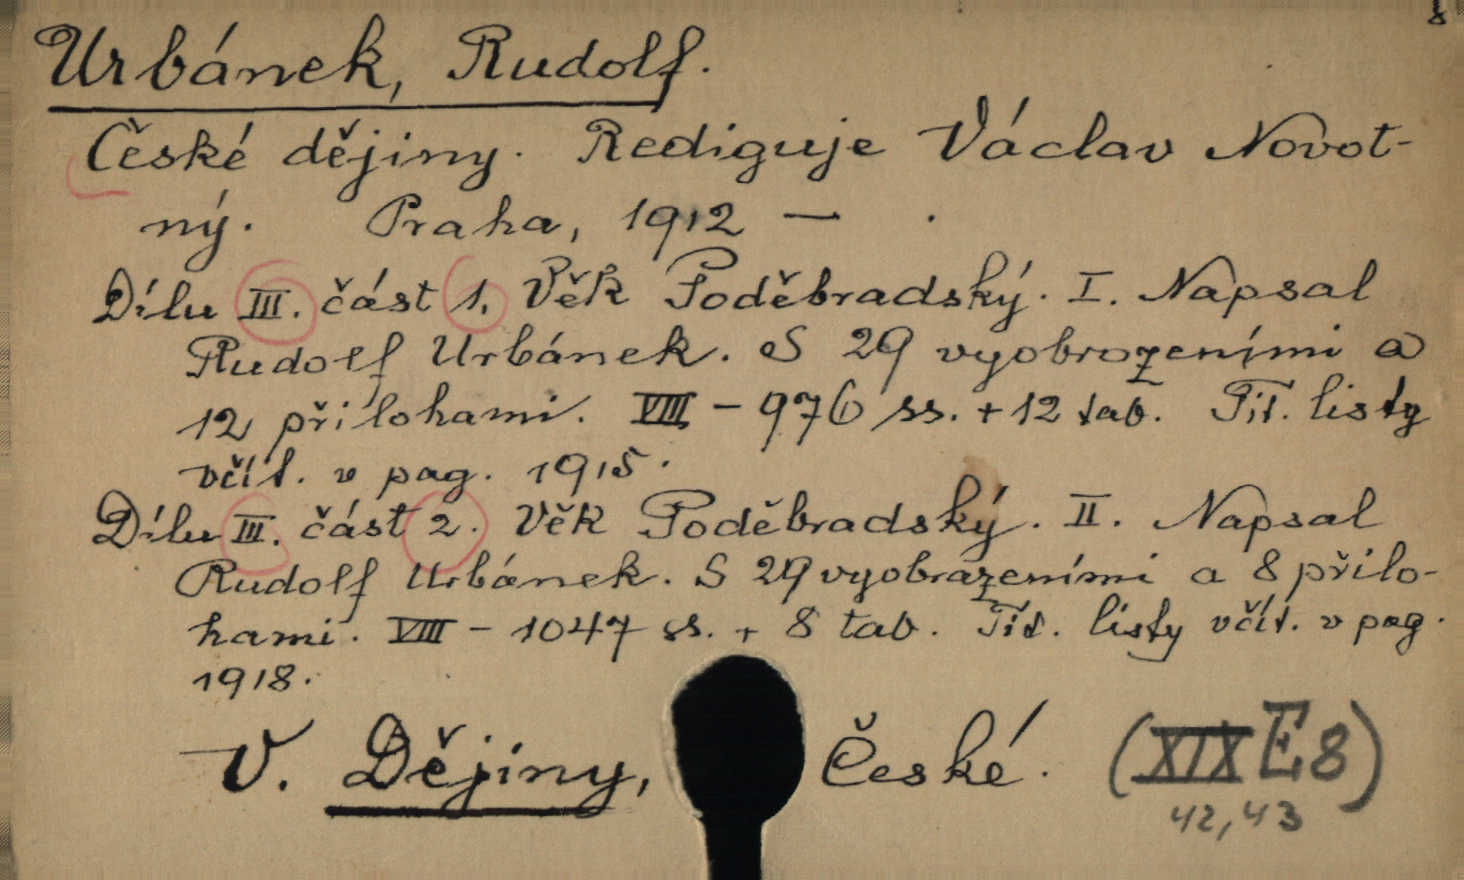 8
Urbánek, Rudolf.
České dějiny. Rediguje Václav Novot-
ný. Praha, 1912 — .
Dílu III. část 1. Věk Poděbradský. I. Napsal
Rudolf Urbánek. S 29 vyobrazeními a
12 přílohami. VIII - 976 ss. + 12 tab. Tit. listy
včít. v pag. 1915.
Dílu III. část 2. Věk Poděbradský. II. Napsal
Rudolf Urbánek. S 29 vyobrazeními a 8 přílo-
hami. VIII - 1047 ss. + 8 tab. Tit. listy včít. v pag.
1918.
V. Dějiny, České. (XIX E 8)
42, 43